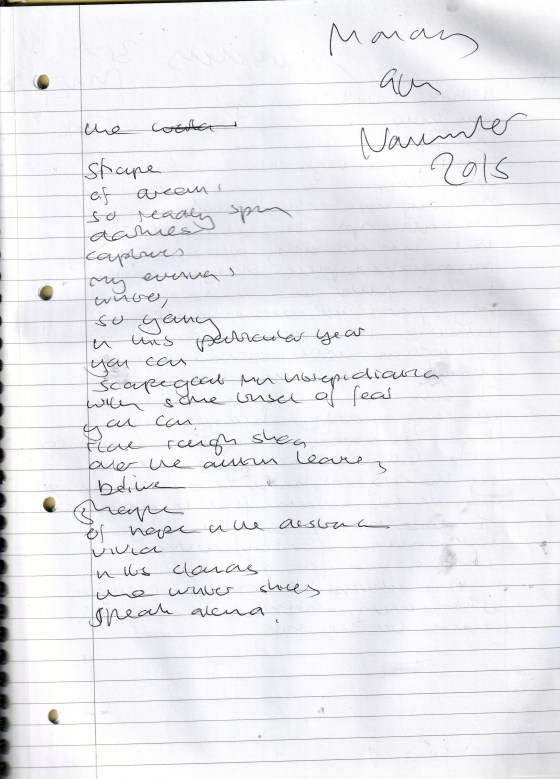 Monday
9th
November
2015
the
shape
of dream
so ready spun
darkness
captures
my evening
winter,
so young
in this particular year
you can
scapegoat my
with some onset of fear
you can
rough
over the autumn leaves
shape
of hope in the
vivid
in its clouds
the winter skies
speak aloud.